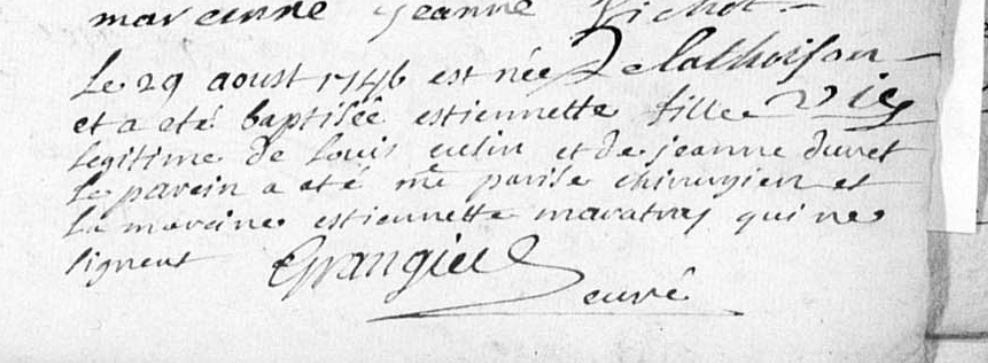 mareinne jeanne Pichot
Le 29 aoust 1746 est née
et a eté baptisée estiennette fille
legitime de Louis eulin et de jeanne duret
Le parein a eté me parise chirurgien et
La mareine estiennette maratray qui ne
signent
curé